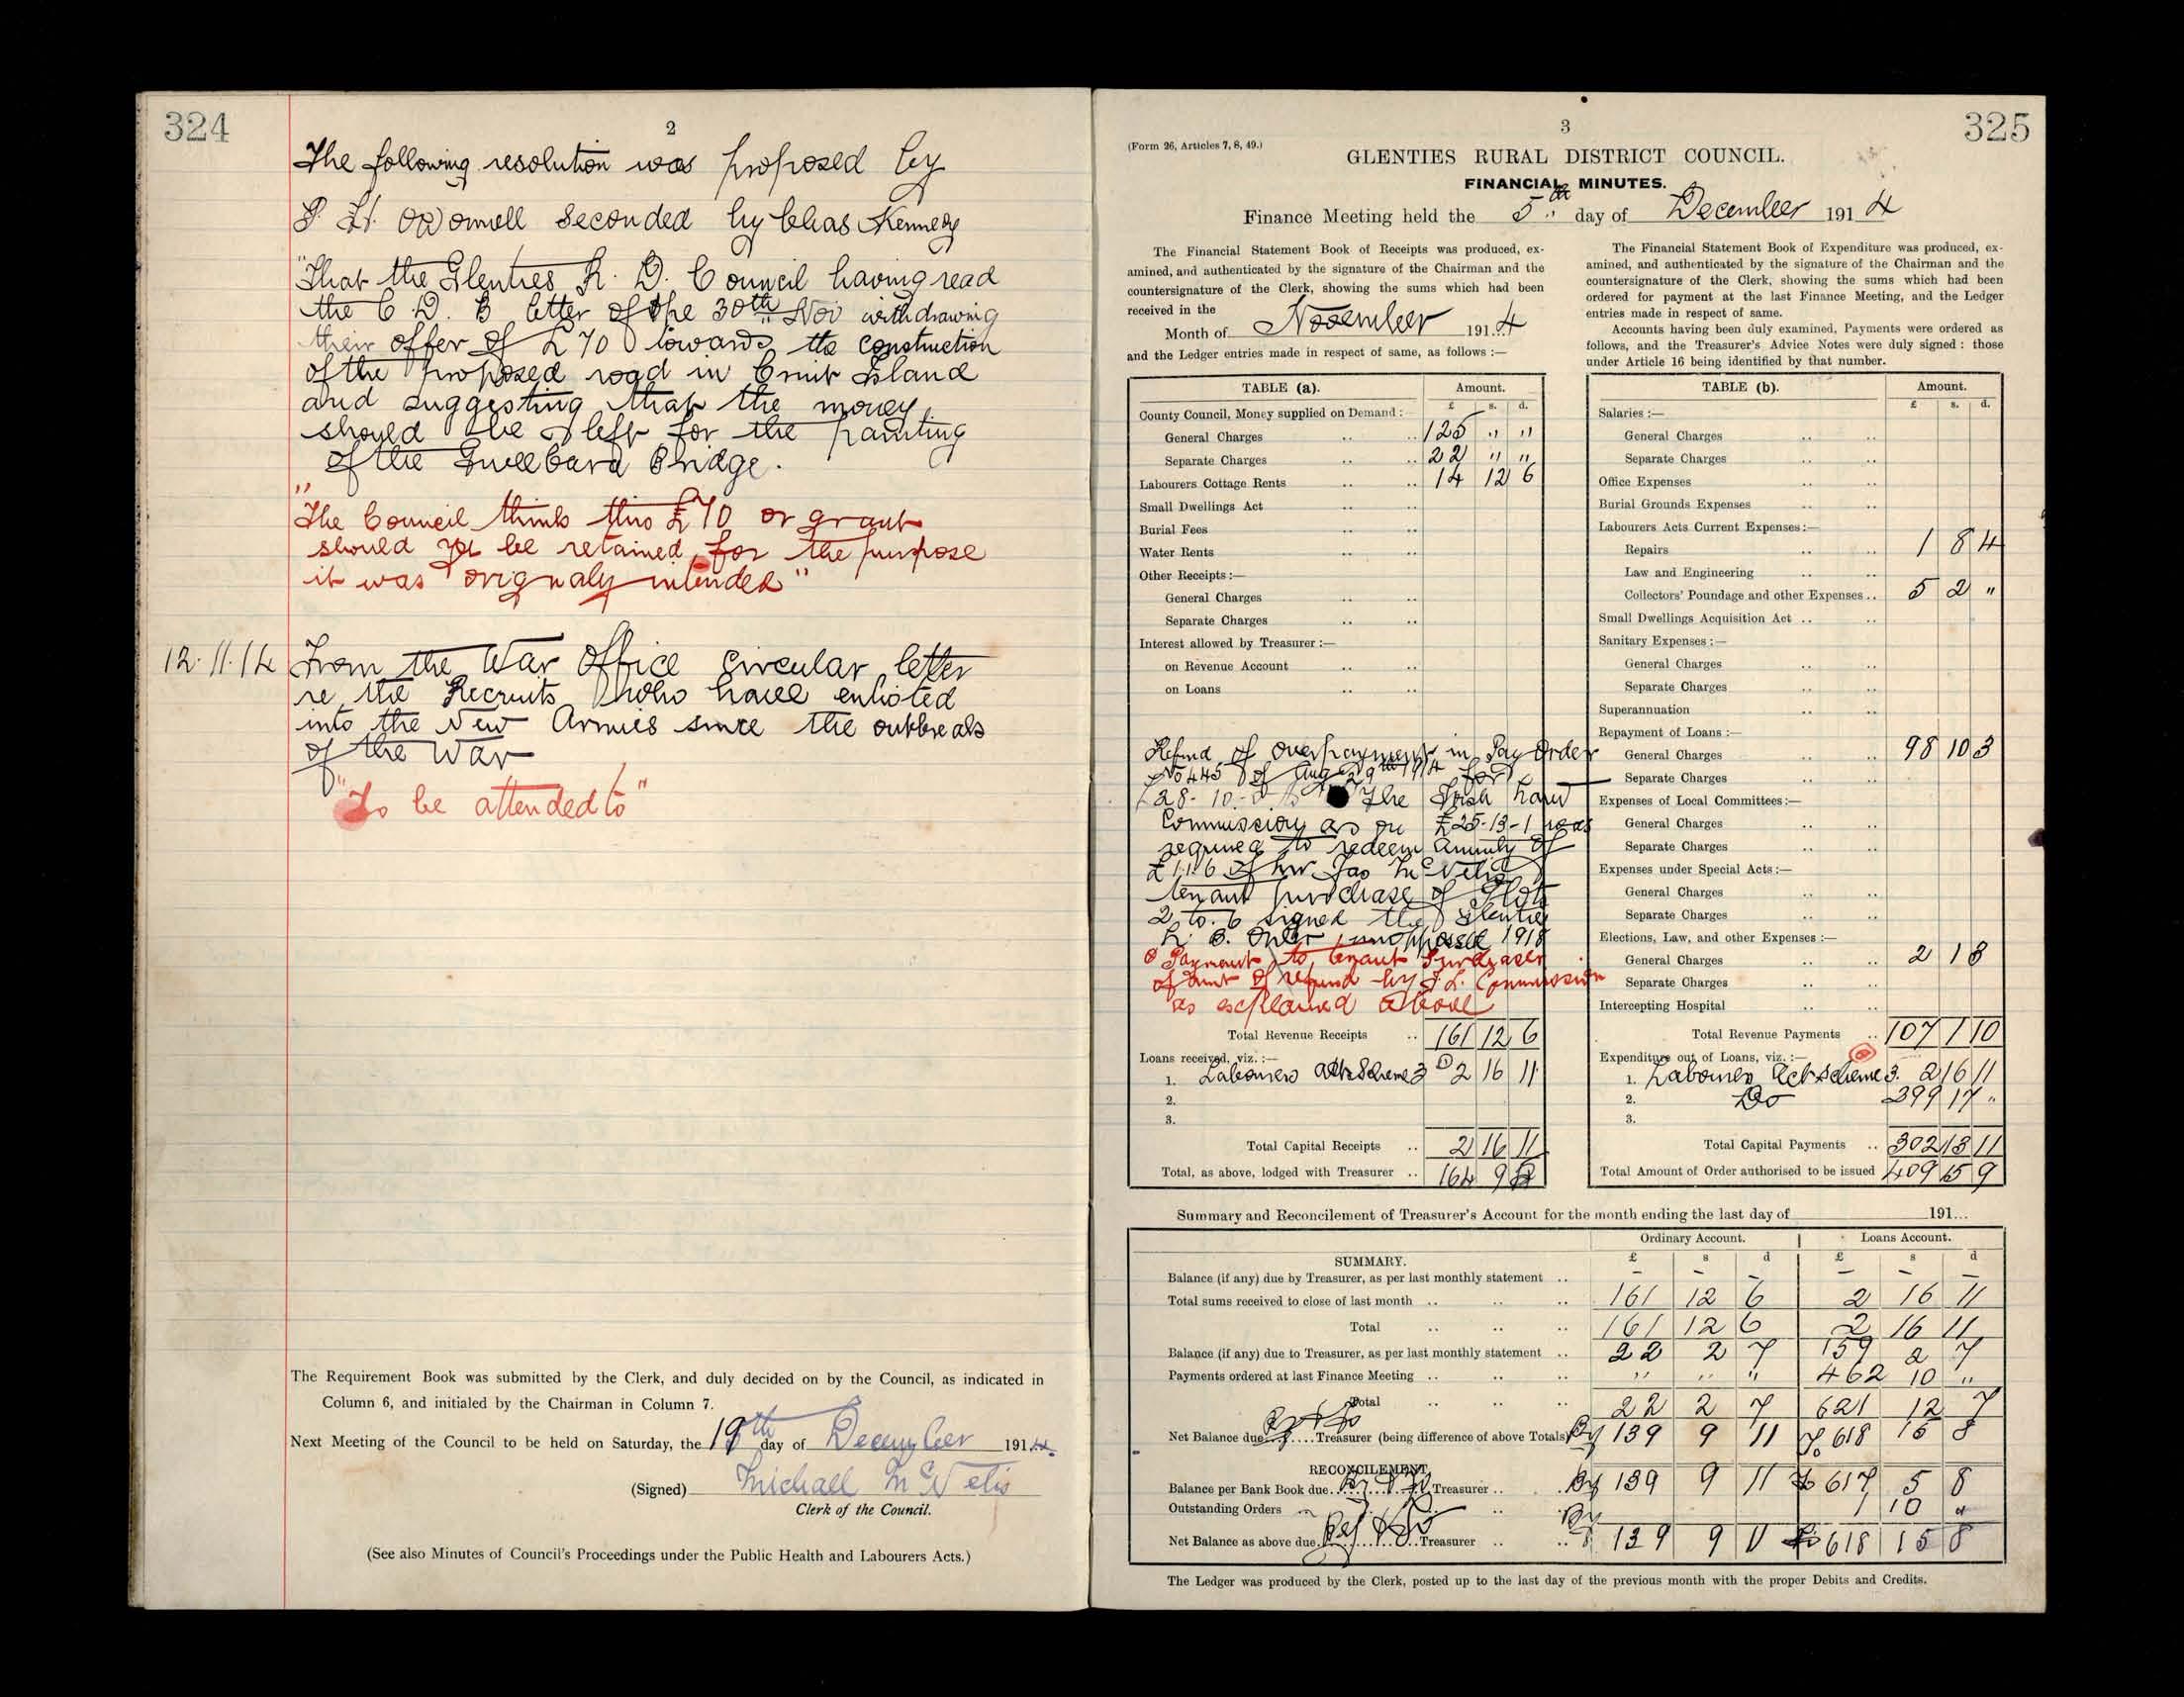 324
2
The following resolution was proposed by
P. H. O'Donnell seconded by Chas Kennedy
"That the Glenties R. D. Council having read
the C. D. B letter of the 30th Nov withdrawing
their offer of £70 towards the construction
of the proposed road in Cruit Island
and suggesting that the money
should be left for the painting
of the Gweebara Bridge.
"The Council think this £70 or grant
should be retained for the purpose
it was orignaly intended"
12.11.14 From the War Office Circular letter
re the Recruits who have enlisted
into the New Armies since the outbreak
of the War
"To be attended to"
The Requirement Book was submitted by the Clerk, and duly decided on by the Council, as indicated in
Column 6, and initialed by the Chairman in Column 7.
Next Meeting of the Council to be held on Saturday, the 19th day of December 1914.
(Signed) Michael McNelis
Clerk of the Council.
(See also Minutes of Council's Proceedings under the Public Health and Labourers Acts.)
325
3
(Form 26, Articles 7, 8, 49.)
GLENTIES RURAL DISTRICT COUNCIL.
FINANCIAL MINUTES.
Finance Meeting held the 5th day of December 1914
The Financial Statement Book of Receipts was produced, ex-
amined, and authenticated by the signature of the Chairman and the
countersignature of the Clerk, showing the sums which had been
received in the
Month of November 1914
and the Ledger entries made in respect of same, as follows :—
TABLE (a). Amount.
£ s. d.
County Council, Money supplied on Demand :
General Charges .. .. 125 " "
Separate Charges .. .. 22 " "
Labourers Cottage Rents .. .. 14 12 6
Small Dwellings Act .. ..
Burial Fees .. ..
Water Rents .. ..
Other Receipts :—
General Charges .. ..
Separate Charges .. ..
Interest allowed by Treasurer :—
on Revenue Account .. ..
on Loans .. ..
Refund of overpayment in Pay Order
No 445 of Aug 29th 1914 for
£28-10- The Irish Land
Commission as on £25-13-1 was
required to redeem Annuity of
£1.1.6 of Mr Jas McNelis
tenant purchase of Plots
2 to 6 signed the Glenties
R. D. Order unopposed 1918
Payment to tenant Purchaser
of amt of refund by I. L. Commission
as explained above
Total Revenue Receipts .. 161 12 6
Loans received, viz. :—
1. Labourers Acts Scheme 3 2 16 11
2.
3.
Total Capital Receipts .. 2 16 11
Total, as above, lodged with Treasurer .. 164 9
The Financial Statement Book of Expenditure was produced, ex-
amined, and authenticated by the signature of the Chairman and the
countersignature of the Clerk, showing the sums which had been
ordered for payment at the last Finance Meeting, and the Ledger
entries made in respect of same.
Accounts having been duly examined, Payments were ordered as
follows, and the Treasurer's Advice Notes were duly signed : those
under Article 16 being identified by that number.
TABLE (b). Amount.
£ s. d.
Salaries :—
General Charges .. ..
Separate Charges .. ..
Office Expenses .. ..
Burial Grounds Expenses .. ..
Labourers Acts Current Expenses :—
Repairs .. .. 1 8 4
Law and Engineering .. ..
Collectors' Poundage and other Expenses .. 5 2 "
Small Dwellings Acquisition Act .. ..
Sanitary Expenses :—
General Charges .. ..
Separate Charges .. ..
Superannuation .. ..
Repayment of Loans :—
General Charges .. .. 98 10 3
Separate Charges .. ..
Expenses of Local Committees :—
General Charges .. ..
Separate Charges .. ..
Expenses under Special Acts :—
General Charges .. ..
Separate Charges .. ..
Elections, Law, and other Expenses :—
General Charges .. .. 2 1 3
Separate Charges .. ..
Intercepting Hospital .. ..
Total Revenue Payments .. 107 1 10
Expenditure out of Loans, viz. :—
1. Labourers Act Scheme 3. 2 16 11
2. Do 299 17 "
3.
Total Capital Payments .. 302 13 11
Total Amount of Order authorised to be issued 409 15 9
Summary and Reconcilement of Treasurer's Account for the month ending the last day of 191...
Ordinary Account. Loans Account.
SUMMARY. £ s d £ s d
Balance (if any) due by Treasurer, as per last monthly statement .. – – – – – –
Total sums received to close of last month .. .. .. 161 12 6 2 16 11
Total .. .. .. 161 12 6 2 16 11
Balance (if any) due to Treasurer, as per last monthly statement .. 22 2 7 159 2 7
Payments ordered at last Finance Meeting .. .. .. " " " 462 10 "
Total .. .. .. 22 2 7 621 12 7
Net Balance due By & To Treasurer (being difference of above Totals) By 139 9 11 To 618 15 8
RECONCILEMENT.
Balance per Bank Book due By & To Treasurer .. .. By 139 9 11 To 617 5 8
Outstanding Orders .. .. 1 10 "
Net Balance as above due By & To Treasurer .. .. By 139 9 11 To 618 15 8
The Ledger was produced by the Clerk, posted up to the last day of the previous month with the proper Debits and Credits.